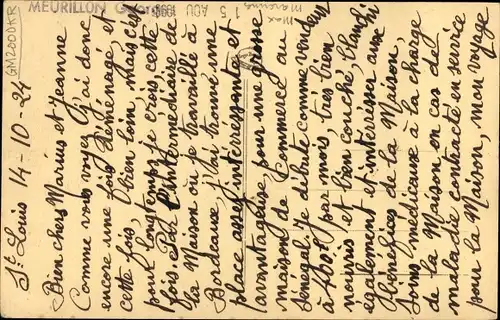 MEURILLON Georges
GM2000KR
St Louis 14-10-24
Bien chers Marius et Jeanne
Comme vous voyez j'ai donc
encore une fois déménagé et
cette fois, bien loin, mais c'est
pour longtemps je crois cette
fois Par l'intermédiaire de
la Maison ou je travaille à
Bordeaux, j'ai trouvé une
place assez intéressante et
avantageuse, pour une grosse
maison de Commerce au
Sénégal je débute comme vendeur
à 400f par mois, très bien
nourris et bien couché, blanchi
également et intéresser aux
bénéfices de la Maison,
soins médicaux à la charge
de la Maison en cas de
maladie contracté en service
pour la Maison, mon voyage